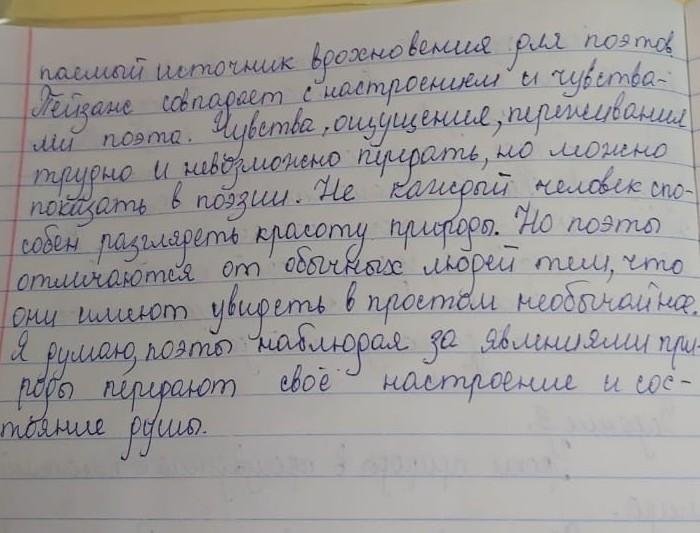 паемый источник вдохновения для поэтов.
Пейзаж совпадает с настроением и чувства-
ми поэта. Чувства, ощущения, переживания
трудно и невозможно передать, но можно
показать в поэзии. Не каждый человек спо-
собен разглядеть красоту природы. Но поэты
отличаются от обычных людей тем, что
они имеют увидеть в простом необычайное.
Я думаю, поэты наблюдая за явлениями при-
роды передают своё настроение и сос-
тояние души.